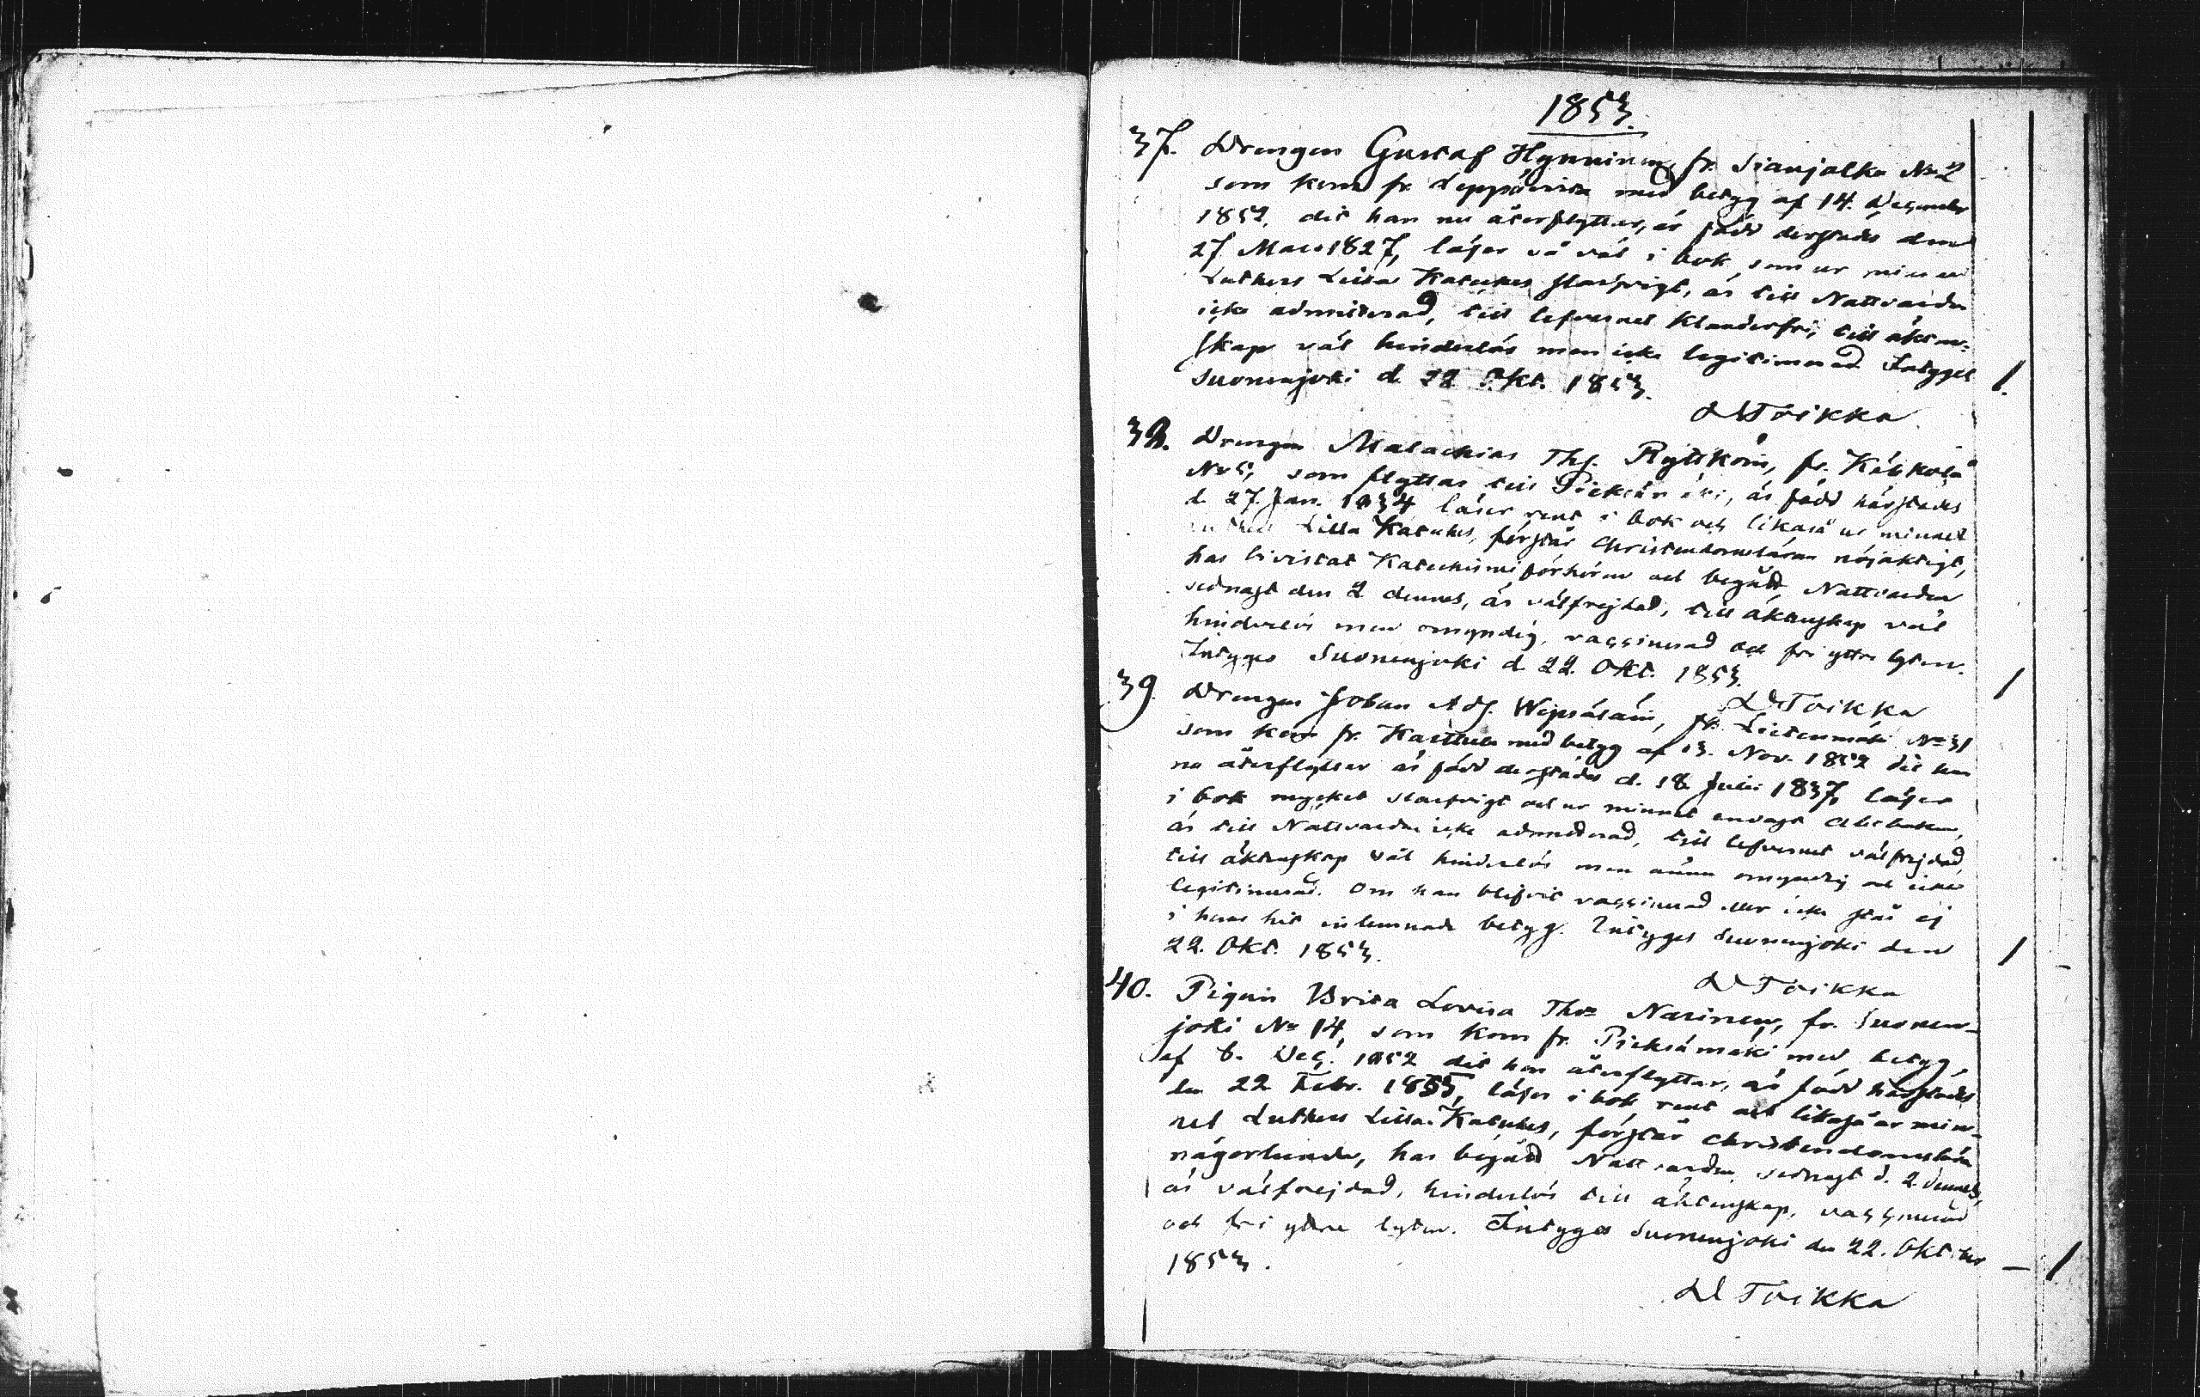 1853.
37. Drengen Gustaf Hynninen, fr. Sianjalka No 2
som kom fr. Leppävirta med betyg af 14. December
1852, dit han nu återflyttar, är född derstädes den
27 Mars 1827, läser så väl i bok, som ur minnet
Luthers Lilla Kateches slarfvigt, är till Nattvarden
icke admitterad, till lefvernet klanderfri, till äkten-
skap väl hinderlös men icke legitimerad Intyges
Suonenjoki d. 22 Okt. 1853.
1.
D Toikka
38. Drengen Malachias Thf. Rytkön, fr. Kärkolä
No 5, som flyttar till Pieksämäki, är född härstädes
d. 27 Jan. 1834 läser rent i bok och likaså ur minnet
Luthers Lilla Kateches, förstår Christendomsläran nöjaktigt,
har bivistat Katechismiförhören och begått Nattvarden
sednast den 2 dennes, är välfrejdad, till äktenskap väl
hinderlös men omyndig, vaccinerad och fri yttre lyten.
Intyges Suonenjoki d. 22. Okt. 1853.
1
D Toikka
39 Drengen Johan Adf. Wepsäläin, fr. Lietenmäki No 31
som kom fr. Karttula med betyg af 13. Nov. 1852 dit han
nu återflyttar är född derstädes d. 18 Julii 1837, läser
i bok mycket slarfvigt och ur minnet endast Abcboken,
är till Nattvarden icke admitterad, till lefvernet välfrejdad,
till äktenskap väl hinderlös men ännu omyndig och icke
legitimerad. Om han blifvit vaccinerad eller icke står ej
i hans hit inlemnade betyg. Intyges Suonenjoki den
22. Okt. 1853.
1
D Toikka
40. Pigan Brita Lovisa Thdr Narinen, fr. Suonen-
joki No 14, som kom fr. Pieksämäki med betyg
af 6. Dec. 1852 dit hon återflyttar, är född härstädes
den 22 Febr. 1835, läser i bok rent och likaså ur min-
net Luthers Lilla Kateches, förstår christendomslära
någorlunda, har begått Nattvarden sednast d. 2. dennes,
är välfrejdad, hinderlös till äktenskap, vaccinerad
och fri yttre lyten. Intyges Suonenjoki den 22. Oktober
1853.
– 1
D Toikka